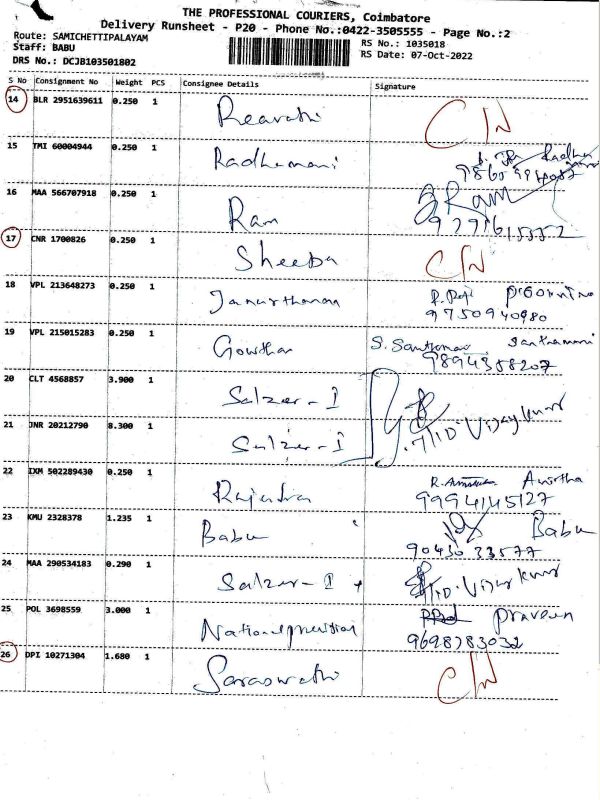 THE PROFESSIONAL COURIERS, Coimbatore
Delivery Runsheet - P20 - Phone No.:0422-3505555 - Page No.:2
Route: SAMICHETTIPALAYAM
Staff: BABU
RS No.: 1035018
DRS No.: DCJB103501802
RS Date: 07-Oct-2022
S No Consignment No Weight PCS Consignee Details Signature
14 BLR 2951639611 0.250 1 Revathi C/N
15 TMI 60004944 0.250 1 Radhamani Radha
16 MAA 566707918 0.250 1 Ram Ram
17 CNR 1700826 0.250 1 Sheeba C/N
18 VPL 213648273 0.250 1 Janarthanan
9750940980
19 VPL 215015283 0.250 1 Gowtham
9894358207
20 CLT 4568857 3.900 1 Salzer-I
21 JNR 20212790 8.300 1 Salzer-I Vijaykumar
22 IXM 502289430 0.250 1 Amirtha
9994145127
23 KMU 2328378 1.235 1 Babu Babu
9043033577
24 MAA 290534183 0.290 1 Salzer-I Vijaykumar
25 POL 3698559 3.000 1 Praveen
9698783032
26 DPI 10271304 1.680 1 Saraswathi C/N